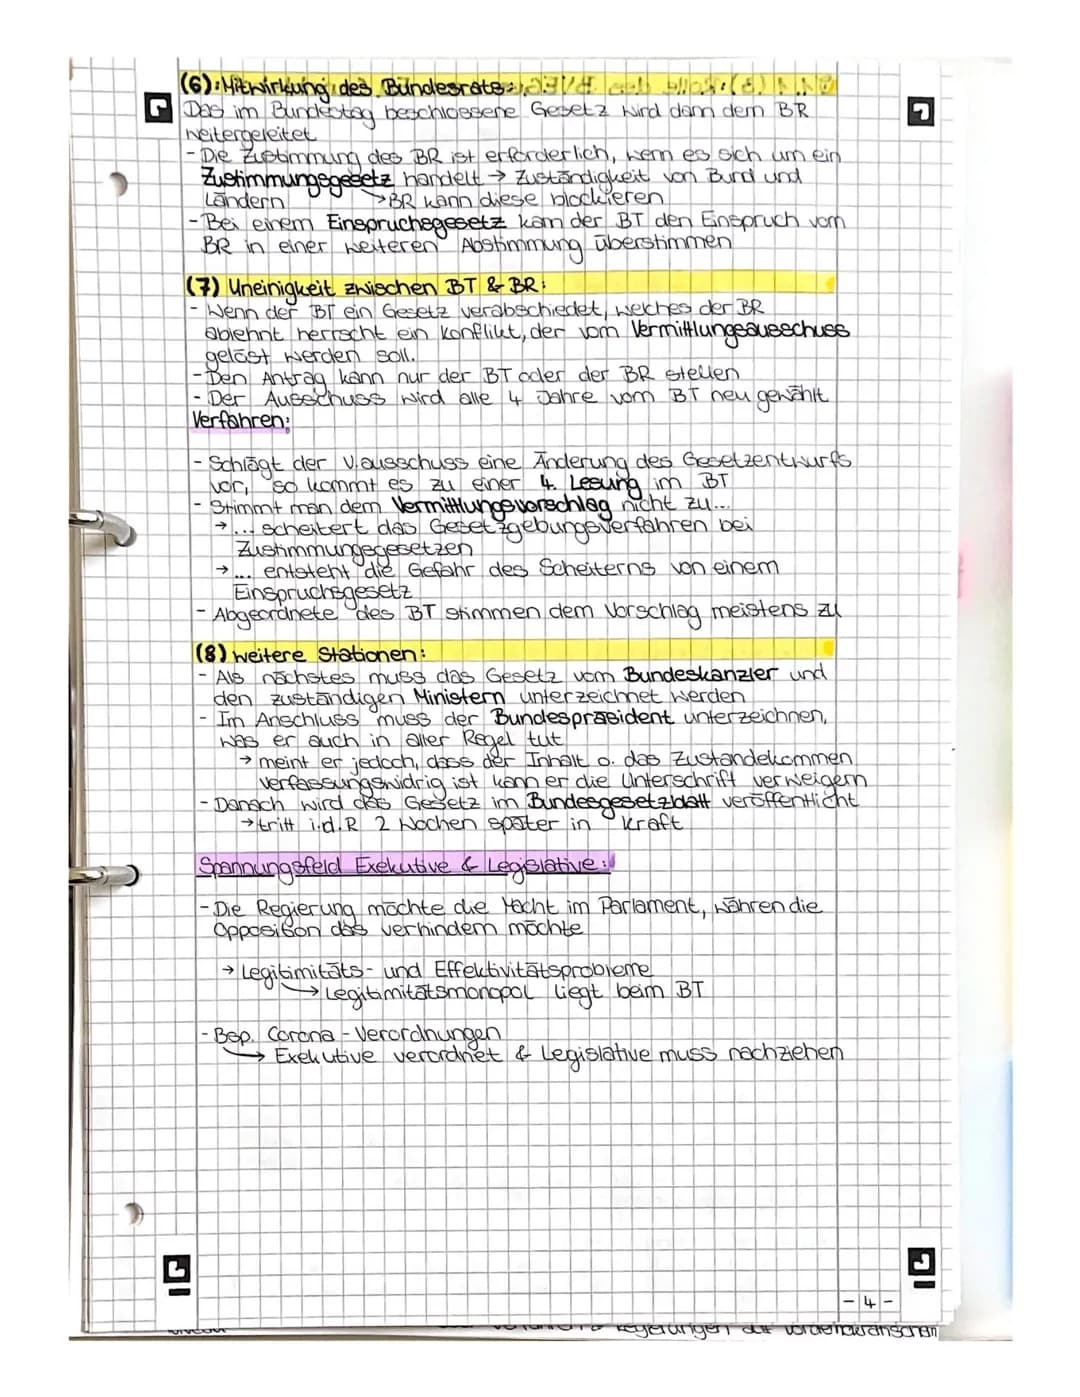 (6) Mitwirkung des Bundesrats:
Das im Bundestag beschlossene Gesetz wird dann dem BR
weitergeleitet
- Die Zustimmung des BR ist erforderlich, wenn es sich um ein
Zustimmungsgesetz handelt → Zuständigkeit von Bund und
Ländern →BR kann diese blockieren
- Bei einem Einspruchsgesetz kann der BT den Einspruch vom
BR in einer weiteren Abstimmung überstimmen
(7) Uneinigkeit zwischen BT & BR:
- Wenn der BT ein Gesetz verabschiedet, welches der BR
ablehnt herrscht ein Konflikt, der vom Vermittlungsausschuss
gelöst werden soll.
- Den Antrag kann nur der BT oder der BR stellen
- Der Ausschuss wird alle 4 Jahre vom BT neu gewählt
Verfahren:
- Schlägt der V.ausschuss eine Änderung des Gesetzentwurfs
vor, so kommt es zu einer 4. Lesung im BT
- Stimmt man dem Vermittlungsvorschlag nicht zu...
→... scheitert das Gesetzgebungsverfahren bei
Zustimmungsgesetzen
→... entsteht die Gefahr des Scheiterns von einem
Einspruchsgesetz
- Abgeordnete des BT stimmen dem Vorschlag meistens zu
(8) weitere Stationen:
- Als nächstes muss das Gesetz vom Bundeskanzler und
den zuständigen Ministern unterzeichnet werden
- Im Anschluss muss der Bundespräsident unterzeichnen,
was er auch in aller Regel tut
→ meint er jedoch, dass der Inhalt o. das Zustandekommen
verfassungswidrig ist kann er die Unterschrift verweigern
- Danach wird das Gesetz im Bundesgesetzblatt veröffentlicht
→tritt i.d.R 2 Wochen später in Kraft
Spannungsfeld Exekutive & Legislative:
- Die Regierung möchte die Macht im Parlament, währen die
Opposition das verhindern möchte
→ Legitimitäts- und Effektivitätsprobleme
→ Legitimitätsmonopol liegt beim BT
- Bsp. Corona - Verordnungen
→ Exekutive verordnet & Legislative muss nachziehen
- 4 -